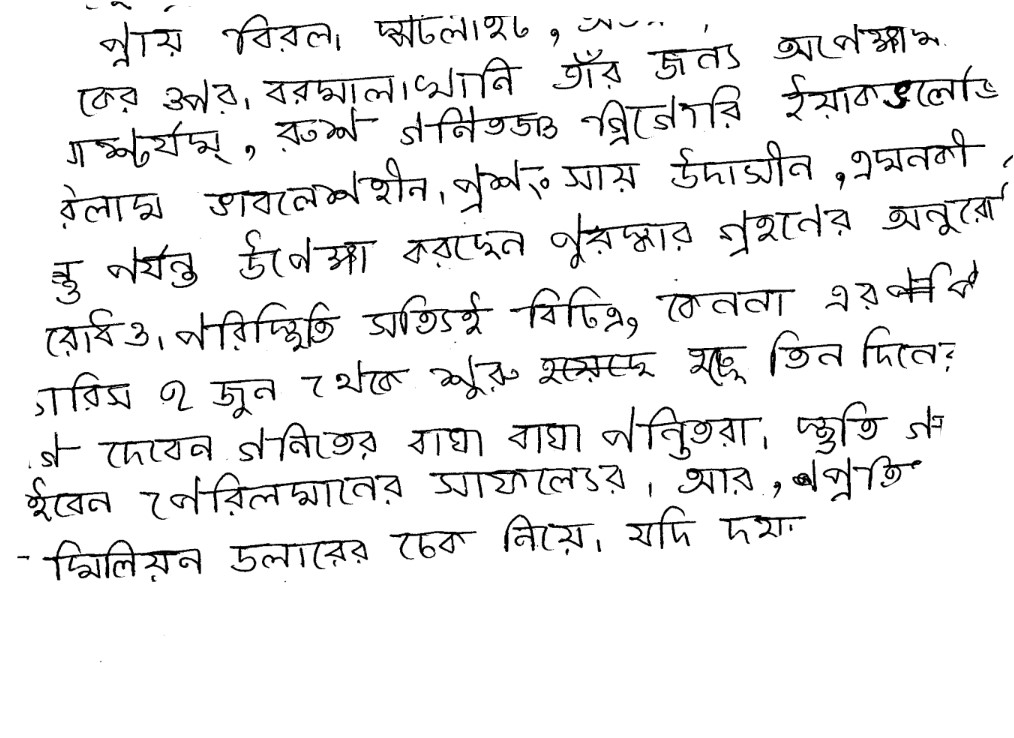 প্রায় বিরল। স্পটলাইট,
কের ওপর। বরমাল্যখানি তাঁর জন্য অপেক্ষা
, রুশ গণিতজ্ঞ গ্রিগোরি ইয়াকভলেভি
রেলমান ভাবলেশহীন। প্রশংসায় উদাসীন, এমনকী
ন্তু পর্যন্ত উপেক্ষা করছেন পুরস্কার গ্রহণের অনুরো
রোধও। পরিস্থিতি সত্যিই বিচিত্র, কেননা এর
ারিস ৭ জুন থেকে শুরু হচ্ছে তিন দিনের
গ দেবেন গণিতের বাঘা বাঘা পণ্ডিতরা। স্তুতি গা
ইবেন পেরিলমানের সাফল্যের। আর, প্রতি
মিলিয়ন ডলারের চেক নিয়ে। যদি দয়া